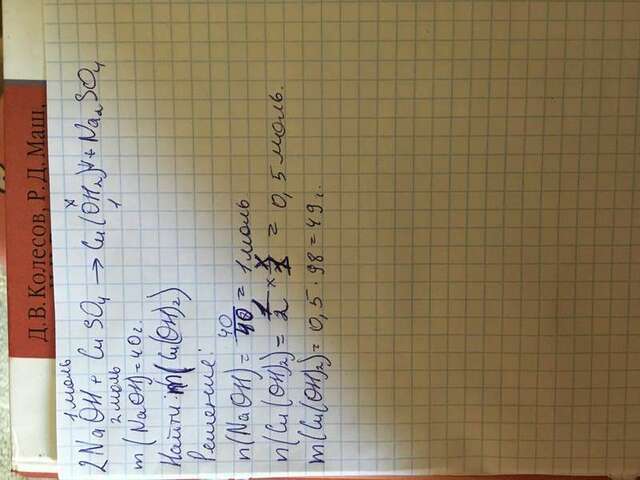 Д.В.Колесов, Р.Д.Маш,
1 моль x
2NaOH + CuSO4 → Cu(OH2)↓ + Na2SO4
2 моль 1
m(NaOH)=40г.
Найти: m(Cu(OH)2)
Решение:
n(NaOH)= 40/40 = 1 моль
n(Cu(OH)2)= 1/2 × x/1 = 0,5 моль.
m(Cu(OH)2)= 0,5 · 98 = 49г.